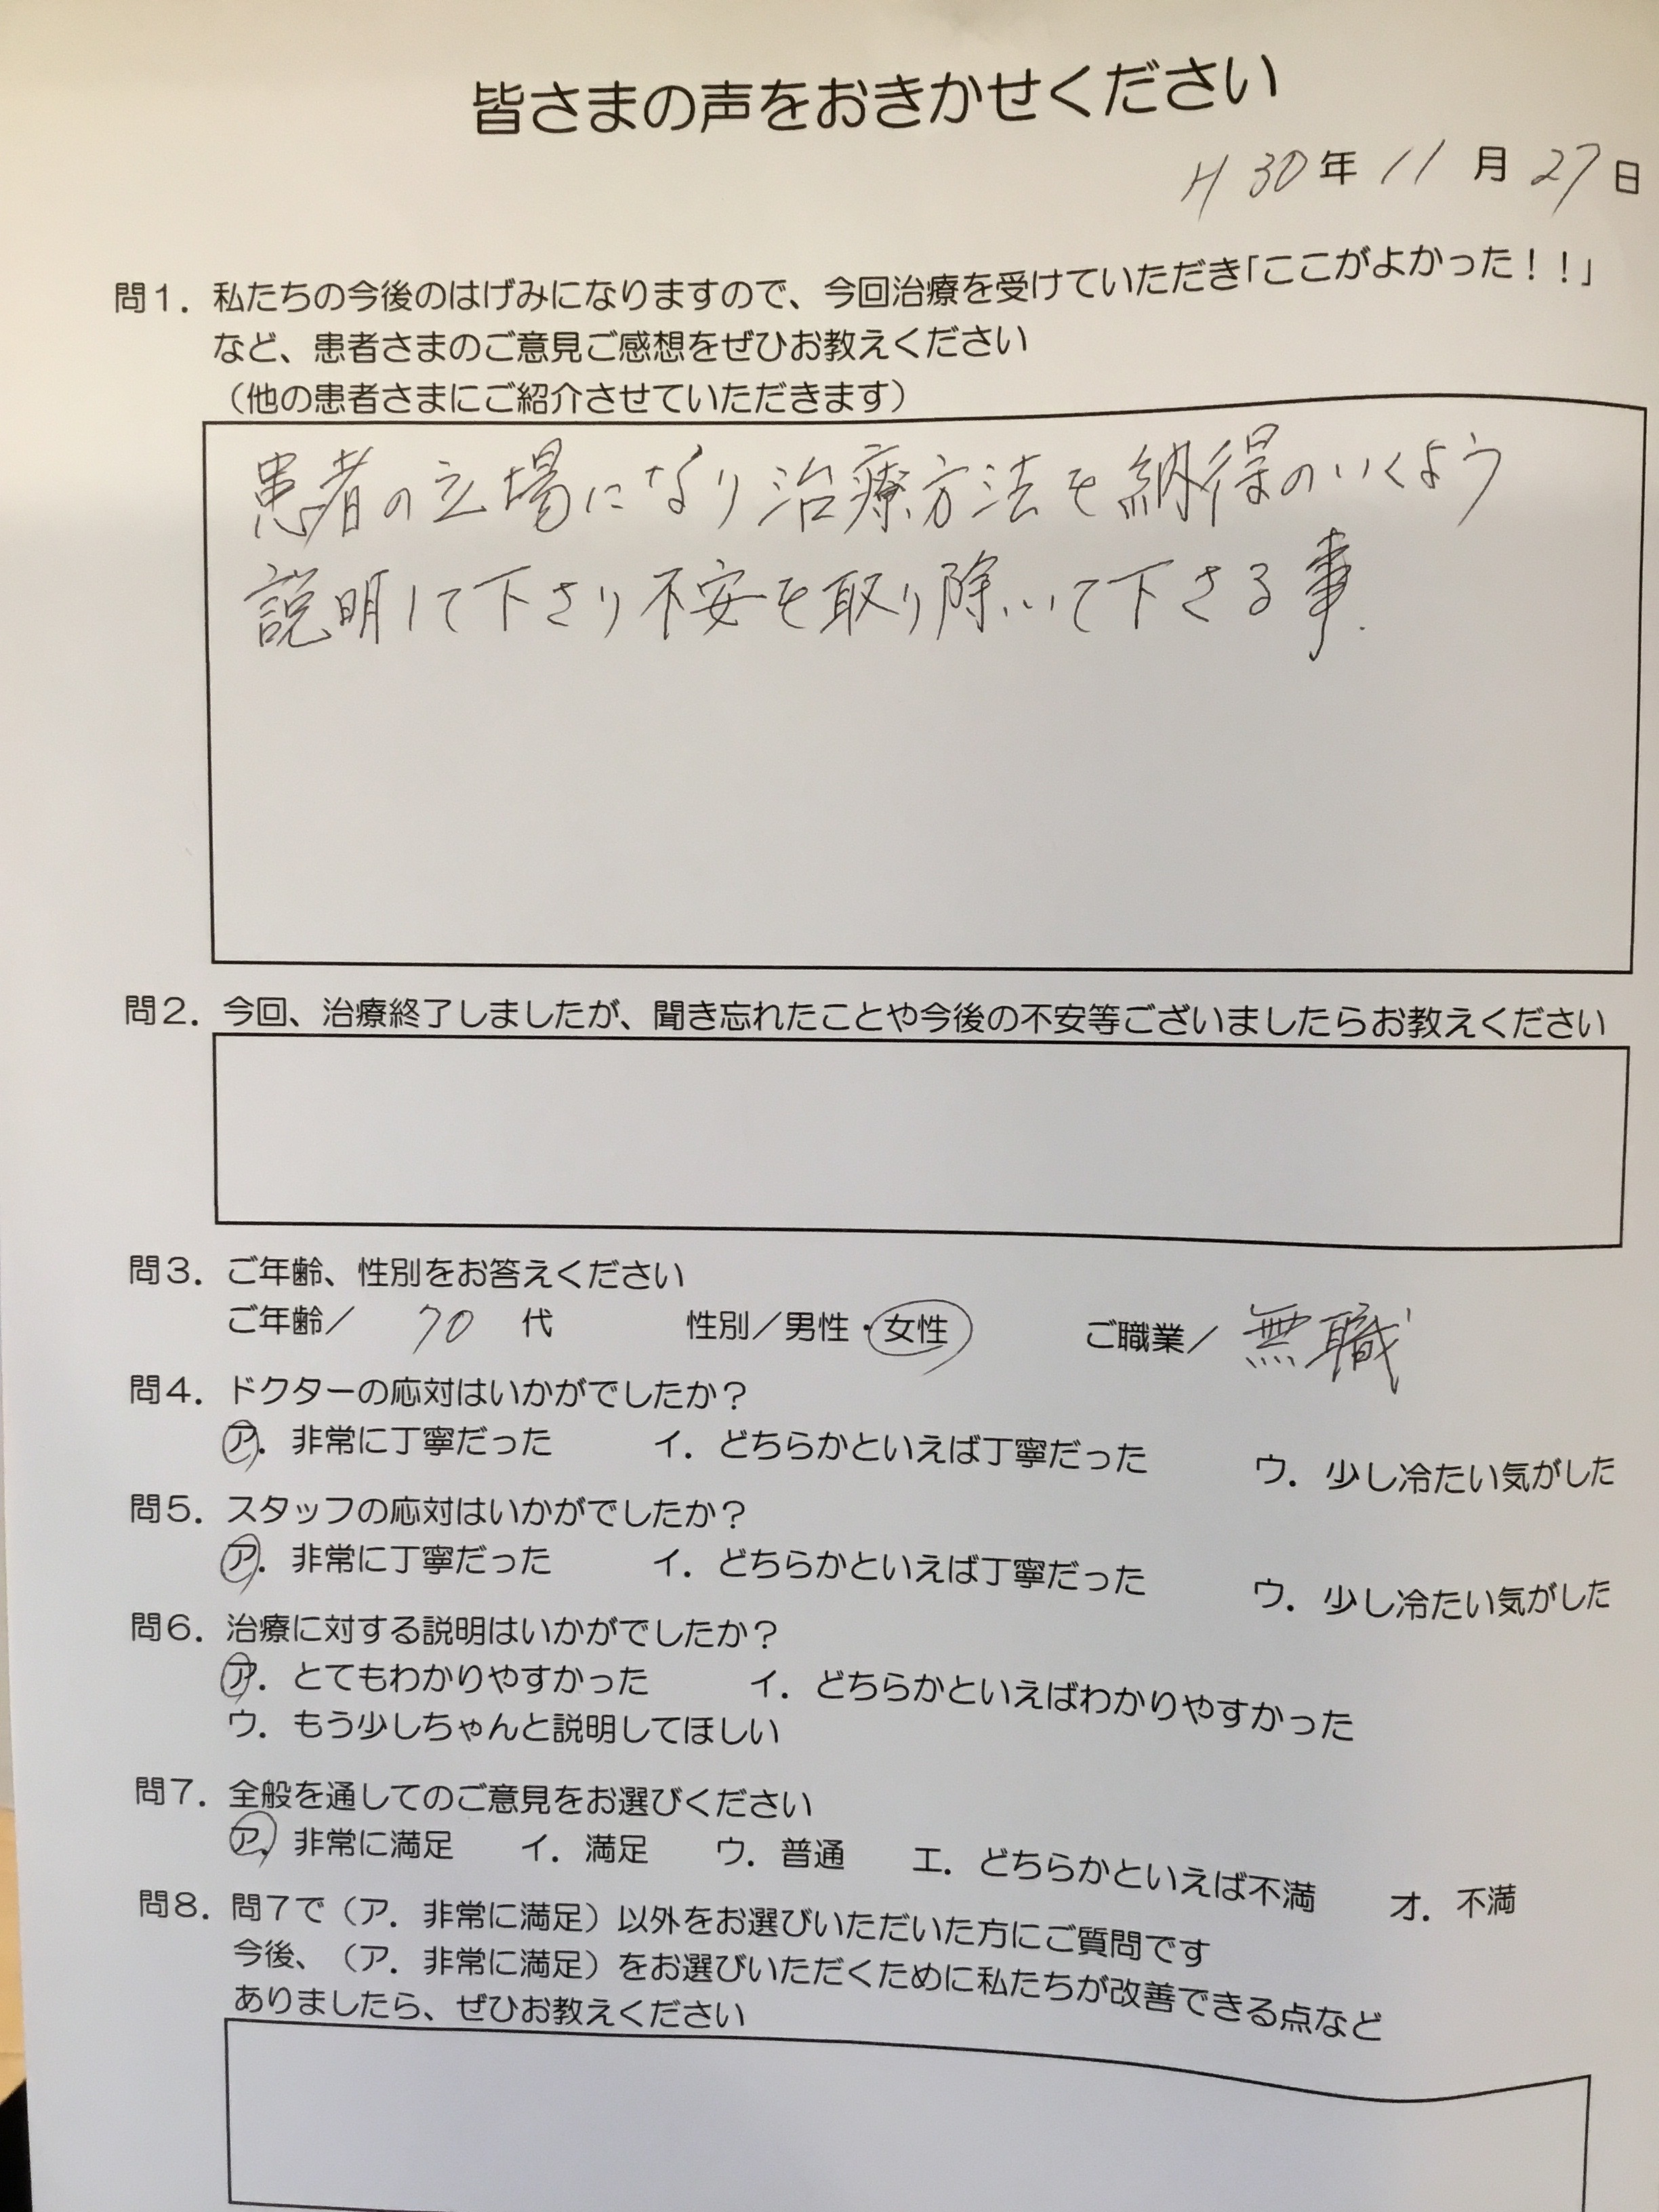 皆さまの声をおきかせください
H30年11月27日
問1．私たちの今後のはげみになりますので、今回治療を受けていただき「ここがよかった！！」
など、患者さまのご意見ご感想をぜひお教えください
（他の患者さまにご紹介させていただきます）
患者の立場になり治療方法を納得のいくよう
説明して下さり不安を取り除いて下さる事.
問2．今回、治療終了しましたが、聞き忘れたことや今後の不安等ございましたらお教えください
問3．ご年齢、性別をお答えください
ご年齢／ 70 代 性別／男性・女性 ご職業／ 無職
問4．ドクターの応対はいかがでしたか？
ア．非常に丁寧だった イ．どちらかといえば丁寧だった ウ．少し冷たい気がした
問5．スタッフの応対はいかがでしたか？
ア．非常に丁寧だった イ．どちらかといえば丁寧だった ウ．少し冷たい気がした
問6．治療に対する説明はいかがでしたか？
ア．とてもわかりやすかった イ．どちらかといえばわかりやすかった
ウ．もう少しちゃんと説明してほしい
問7．全般を通してのご意見をお選びください
ア．非常に満足 イ．満足 ウ．普通 エ．どちらかといえば不満 オ．不満
問8．問7で（ア．非常に満足）以外をお選びいただいた方にご質問です
今後、（ア．非常に満足）をお選びいただくために私たちが改善できる点など
ありましたら、ぜひお教えください